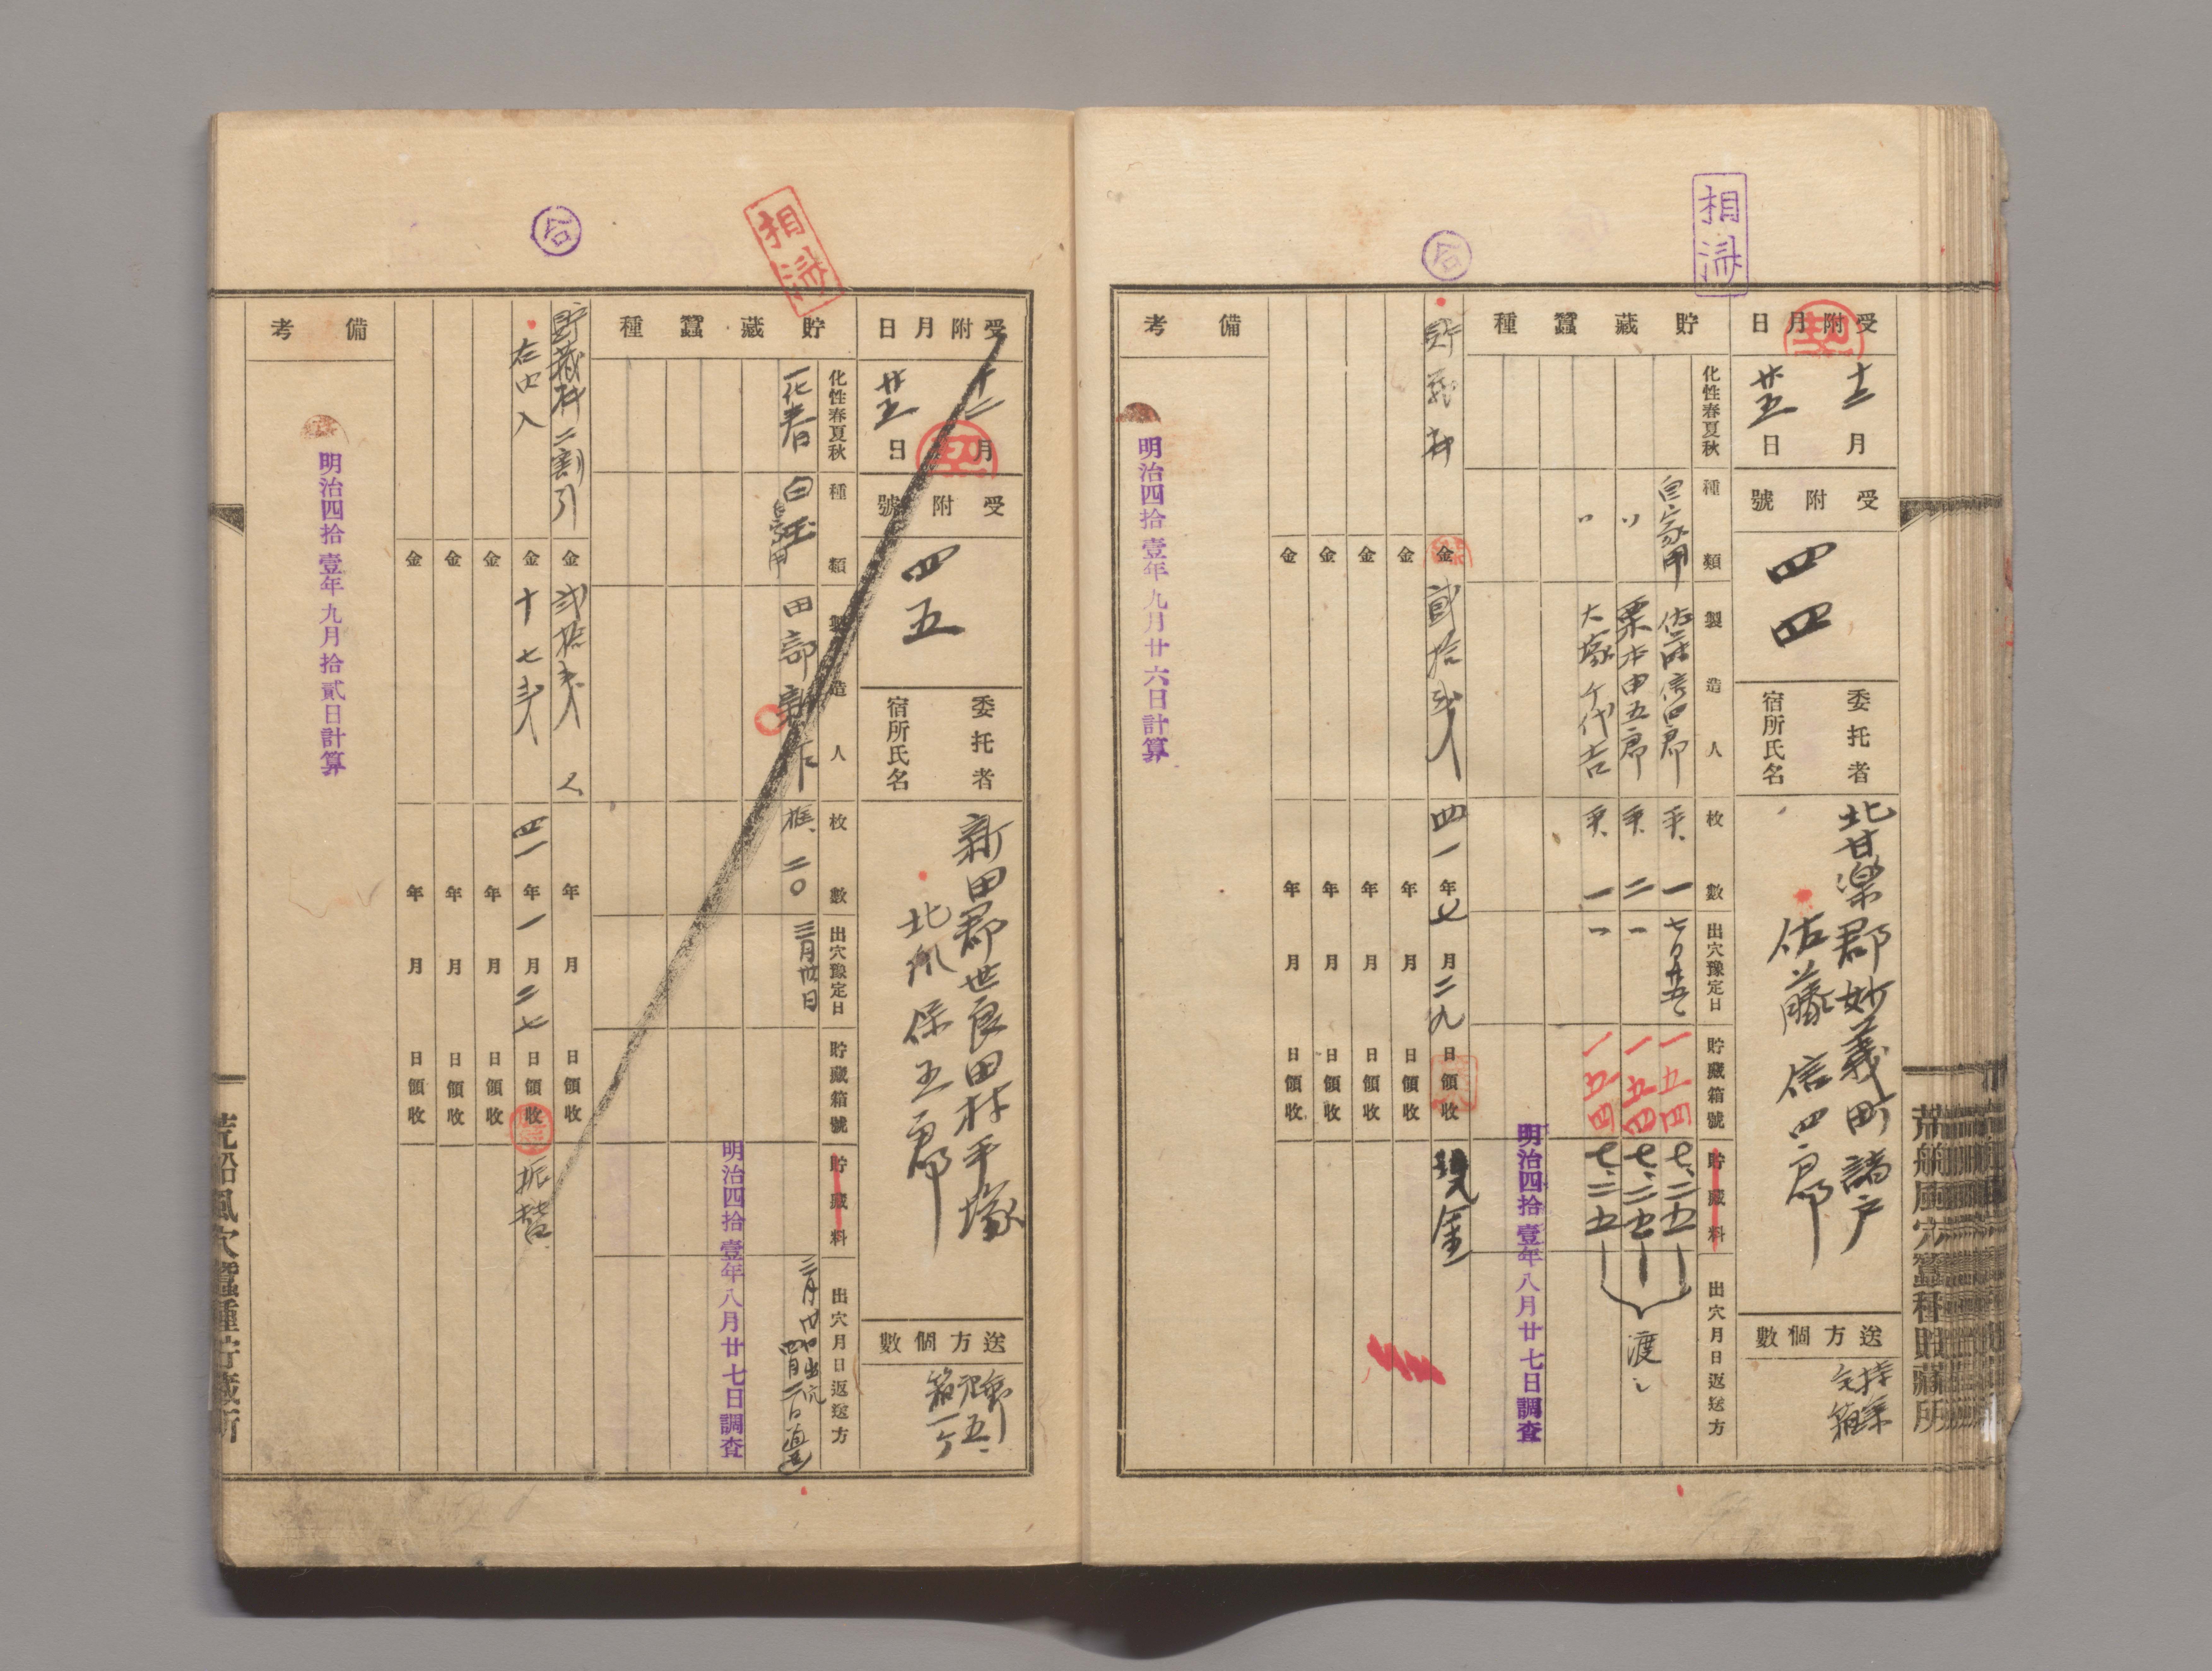 相濟
契
受附月日
十二月
廿五日
受附號
四四
委托者
宿所氏名
北甘楽郡妙義町諸戸
佐藤信四郎
送方個數
持参
貯藏蠶種
化性春夏秋
種類
製造人
枚數
出穴豫定日
貯藏箱號
貯藏料
出穴月日返送方
自家用 佐藤信四郎 平、一 一五四 七、二五
〃 栗本由五郎 平、二 〃 一五四 七、二五 渡シ
〃 大塚ケ代吉 平、一 〃 一五四 七、二五
明治四拾壹年八月廿七日調査
合
貯蔵料 金貳拾弐 四一年七月二九日領收 現金
金 年 月 日領收
金 年 月 日領收
金 年 月 日領收
金 年 月 日領收
備考
明治四拾壹年九月廿六日計算
荒船風穴蠶種貯藏所
相濟
契
受附月日
十二月
廿五日
受附號
四五
委托者
宿所氏名
新田郡世良田村平塚
北爪保五郎
送方個數
箱一ケ
貯藏蠶種
化性春夏秋
種類
製造人
枚數
出穴豫定日
貯藏箱號
貯藏料
出穴月日返送方
一化春 白玉 自家用 田部新作 框、二〇 三月廿日
明治四拾壹年八月廿七日調査
合
貯蔵料二割引 金 年 月 日領收
右内入 金十七 四一年一月二七日領收 振替
金 年 月 日領收
金 年 月 日領收
金 年 月 日領收
備考
明治四拾壹年九月拾貳日計算
荒船風穴蠶種貯藏所